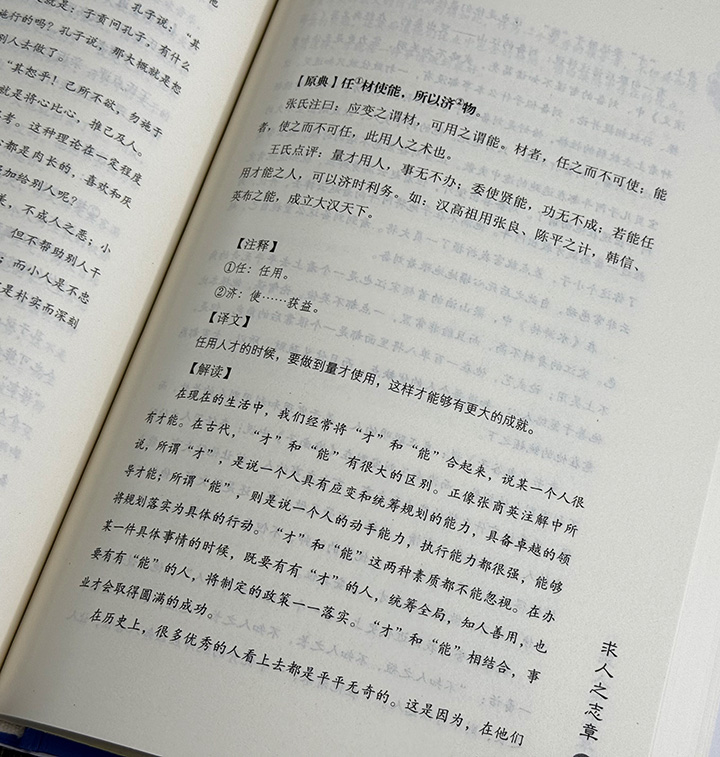 就是：子贡问孔子，有什么
施行的吗？孔子说，那大概就是想
别人去做了。
“其恕乎！己所不欲，勿施于
就是将心比心，推己及人。
考。这种理论在一定程度
都是肉长的，喜欢和厌
加给别人呢？
不成人之恶；小
但不帮助别人干
而小人是不忠
是朴实而深刻
【原典】任①材使能，所以济②物。
张氏注曰：应变之谓材，可用之谓能。材者，任之而不可使；能
者，使之而不可任，此用人之术也。
王氏点评：量才用人，事无不办；委使贤能，功无不成；若能任
用才能之人，可以济时利务。如：汉高祖用张良、陈平之计，韩信、
英布之能，成立大汉天下。
【注释】
①任：任用。
②济：使……获益。
【译文】
任用人才的时候，要做到量才使用，这样才能够有更大的成就。
【解读】
在现在的生活中，我们经常将“才”和“能”合起来，说某一个人很
有才能。在古代，“才”和“能”有很大的区别。正像张商英注解中所
说，所谓“才”，是说一个人具有应变和统筹规划的能力，具备卓越的领
导才能；所谓“能”，则是说一个人的动手能力，执行能力都很强，能够
将规划落实为具体的行动。“才”和“能”这两种素质都不能忽视。在办
某一件具体事情的时候，既要有有“才”的人，统筹全局，知人善用，也
要有有“能”的人，将制定的政策一一落实。“才”和“能”相结合，事
业才会取得圆满的成功。
在历史上，很多优秀的人看上去都是平平无奇的。这是因为，在他们
求人之志章